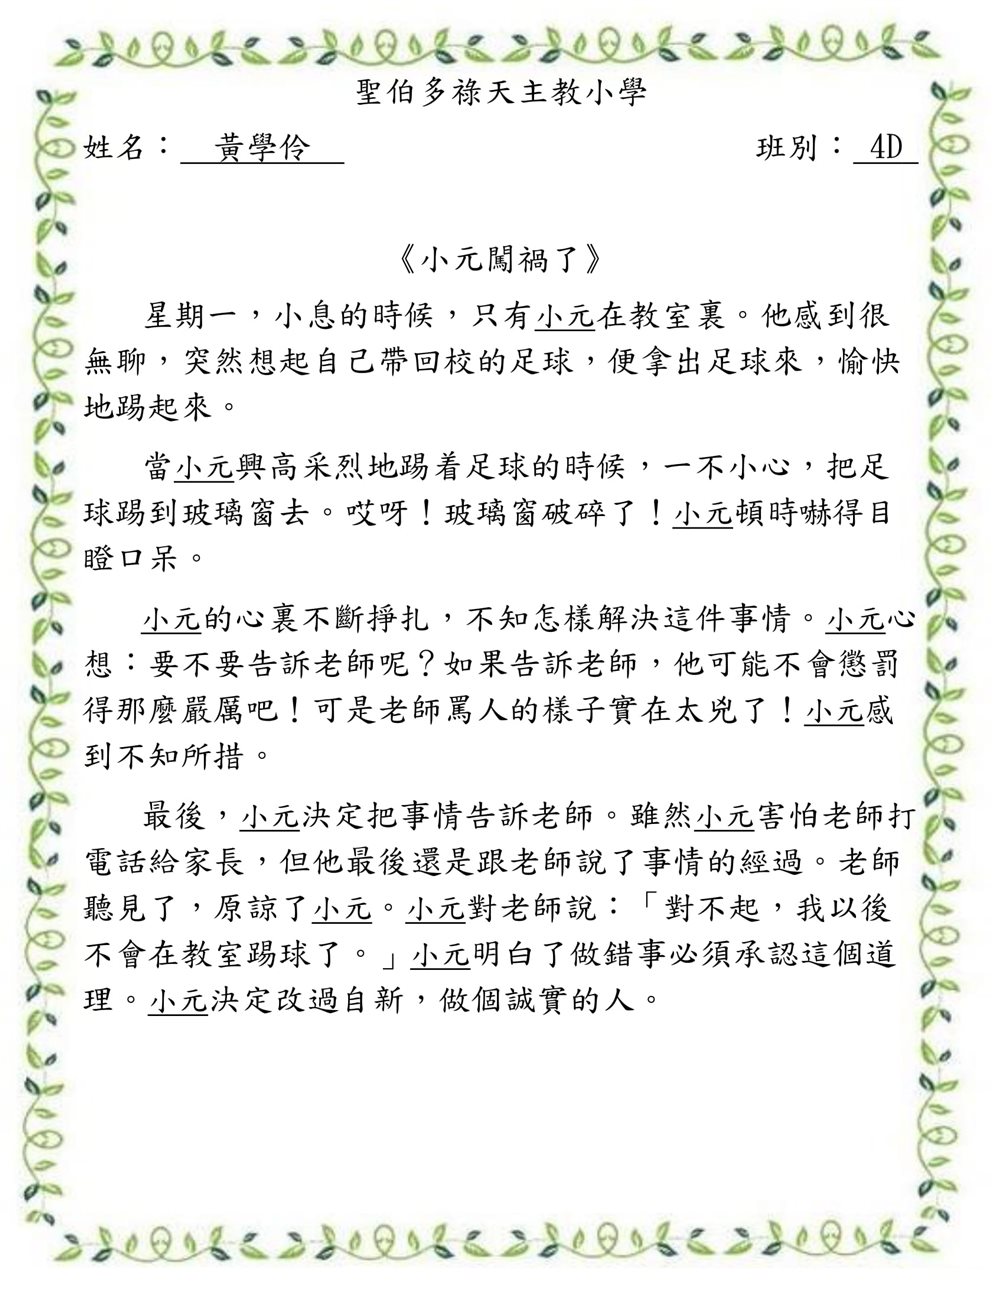 聖伯多祿天主教小學
姓名：黃學伶 班別：4D
《小元闖禍了》
星期一，小息的時候，只有小元在教室裏。他感到很
無聊，突然想起自己帶回校的足球，便拿出足球來，愉快
地踢起來。
當小元興高采烈地踢着足球的時候，一不小心，把足
球踢到玻璃窗去。哎呀！玻璃窗破碎了！小元頓時嚇得目
瞪口呆。
小元的心裏不斷掙扎，不知怎樣解決這件事情。小元心
想：要不要告訴老師呢？如果告訴老師，他可能不會懲罰
得那麼嚴厲吧！可是老師罵人的樣子實在太兇了！小元感
到不知所措。
最後，小元決定把事情告訴老師。雖然小元害怕老師打
電話給家長，但他最後還是跟老師說了事情的經過。老師
聽見了，原諒了小元。小元對老師說：「對不起，我以後
不會在教室踢球了。」小元明白了做錯事必須承認這個道
理。小元決定改過自新，做個誠實的人。